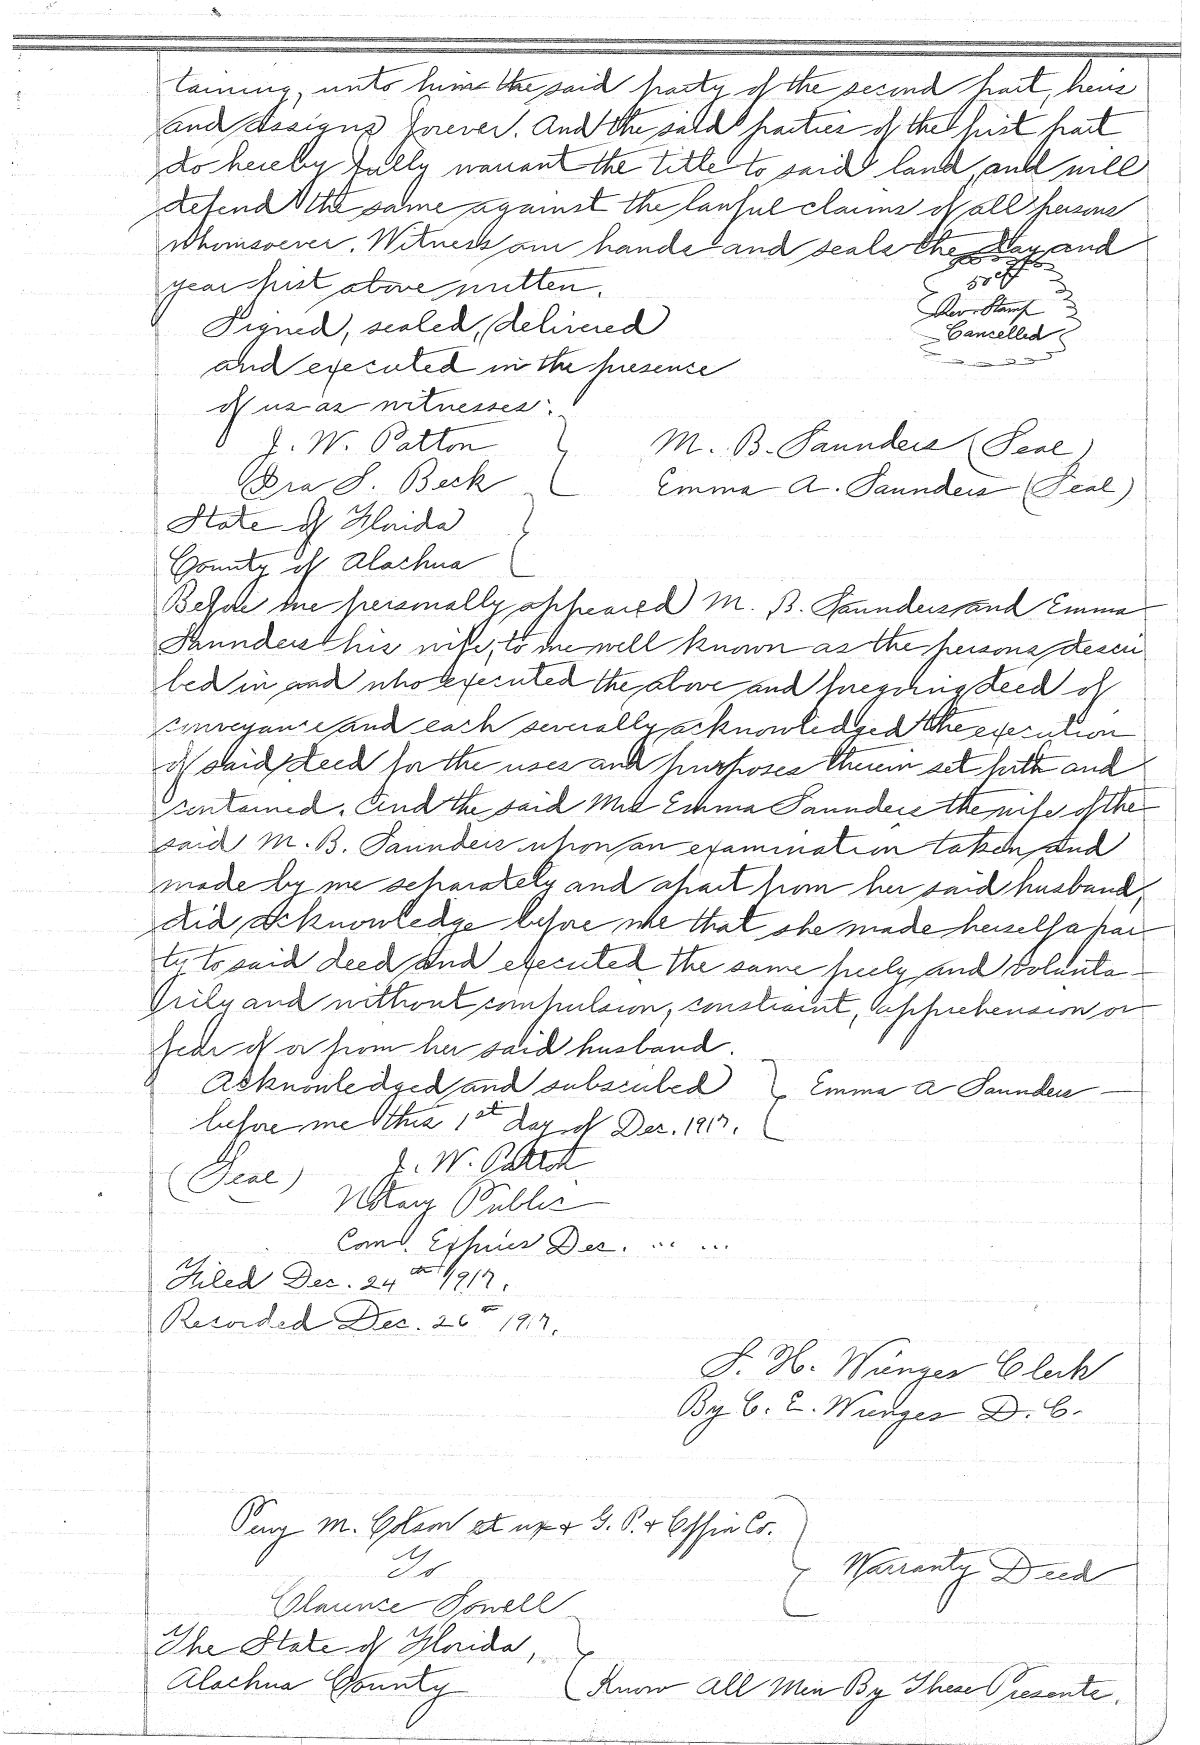 taining, unto him the said party of the second part, heirs
and assigns forever. And the said parties of the first part
do hereby fully warrant the title to said land, and will
defend the same against the lawful claims of all persons
whomsoever. Witness our hands and seals the day and
year first above written.
50¢
Rev. Stamp
Cancelled
Signed, sealed, delivered
and executed in the presence
of us as witnesses:
J. W. Patton
M. B. Saunders (Seal)
Ira S. Beck
Emma A. Saunders (Seal)
State of Florida
County of Alachua
Before me personally appeared M. B. Saunders and Emma
Saunders his wife, to me well known as the persons descri
bed in and who executed the above and foregoing deed of
conveyance and each severally acknowledged the execution
of said deed for the uses and purposes therein set forth and
contained. And the said Mrs Emma Saunders the wife of the
said M. B. Saunders upon an examination taken and
made by me separately and apart from her said husband,
did acknowledge before me that she made herself a par
ty to said deed and executed the same freely and volunta-
rily and without compulsion, constraint, apprehension or
fear of or from her said husband.
Acknowledged and subscribed
Emma A Saunders
before me this 1st day of Dec. 1917.
(Seal) J. W. Patton
Notary Public
Com. Expires Dec. ... ...
Filed Dec. 24th 1917.
Recorded Dec. 26th 1917.
S. H. Wienges Clerk
By C. E. Wienges D. C.
Perry M. Colson et ux & G. P. & Coffin Co.
To
Warranty Deed
Clarence Sowell
The State of Florida,
Alachua County
Know All Men By These Presents.